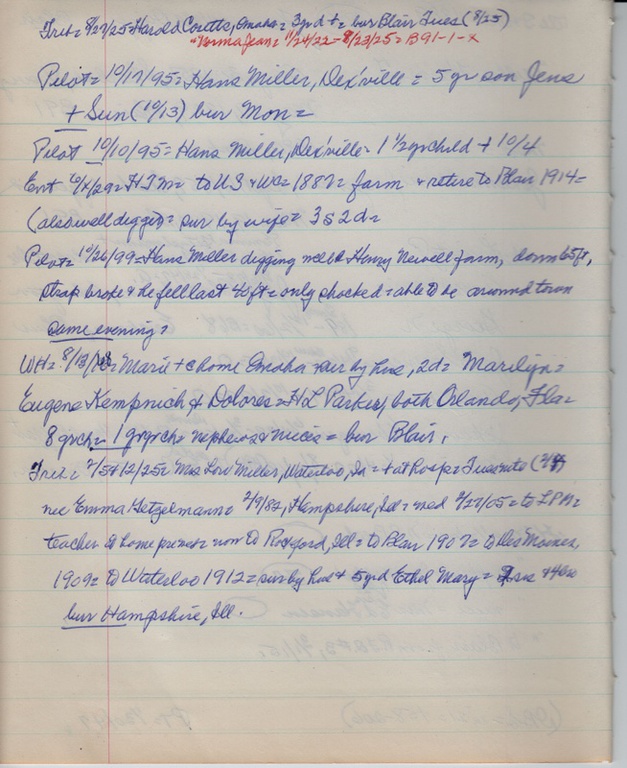 Trib= 8/27/25= Harold Coutts, Omaha= 3yr d += bur Blair Tues (8/25)
"Norma Jean= 11/24/22 - 8/23/25= B91-1-X
Pilot= 10/17/95= Hans Miller, Dex'ville = 5 yr son Jens
+ Sun (10/13) bur Mon=
Pilot 10/10/95= Hans Miller, Dex'ville= 1 1/2 yr child + 10/4
Ent = HJM= to US & WC= 1882= farm & retire to Blair 1914=
(also well digger)= sur by wife= 3s 2d=
Pilot= 10/26/99= Hans Miller digging well @ Henry Newell farm, down 65 ft,
strap broke & he fell last 40 ft= only shocked= able to be around town
same evening=
WH= = Marie + @ home Omaha= sur by hus, 2d= Marilyn=
Eugene Kempnich & Dolores= HL Parker, both Orlando, Fla=
8 grch= 1 grgrch= nephews & nieces= bur Blair.
Trib= 2/5+12/25= Mrs Lou Miller, Waterloo, Ia= + at Hosp= Tues nite
nee Emma Getzelmann= 2/9/82, Hampshire, Ill= med 2/27/05= to LPM=
teacher @ home prev= mov to Rockford, Ill= to Blair 1907= to Des Moines,
1909= to Waterloo 1912= sur by hus & 5yr d Ethel Mary= & 4 bro
bur Hampshire, Ill.